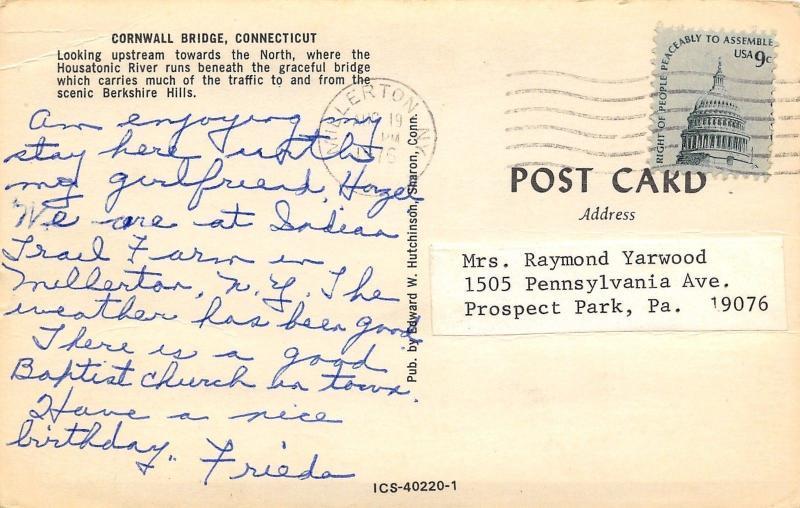 CORNWALL BRIDGE, CONNECTICUT
Looking upstream towards the North, where the
Housatonic River runs beneath the graceful bridge
which carries much of the traffic to and from the
scenic Berkshire Hills.
Am enjoying my
stay here with
my girlfriend, Hazel
We are at Indian
Trail Farm in
Millerton, N.Y. The
weather has been good
There is a good
Baptist church in town.
Have a nice
birthday. Frieda
MILLERTON, NY
AUG 19
PM
1976
Pub. by Edward W. Hutchinson, Sharon, Conn.
RIGHT OF PEOPLE PEACEABLY TO ASSEMBLE
USA 9c
POST CARD
Address
Mrs. Raymond Yarwood
1505 Pennsylvania Ave.
Prospect Park, Pa. 19076
ICS-40220-1